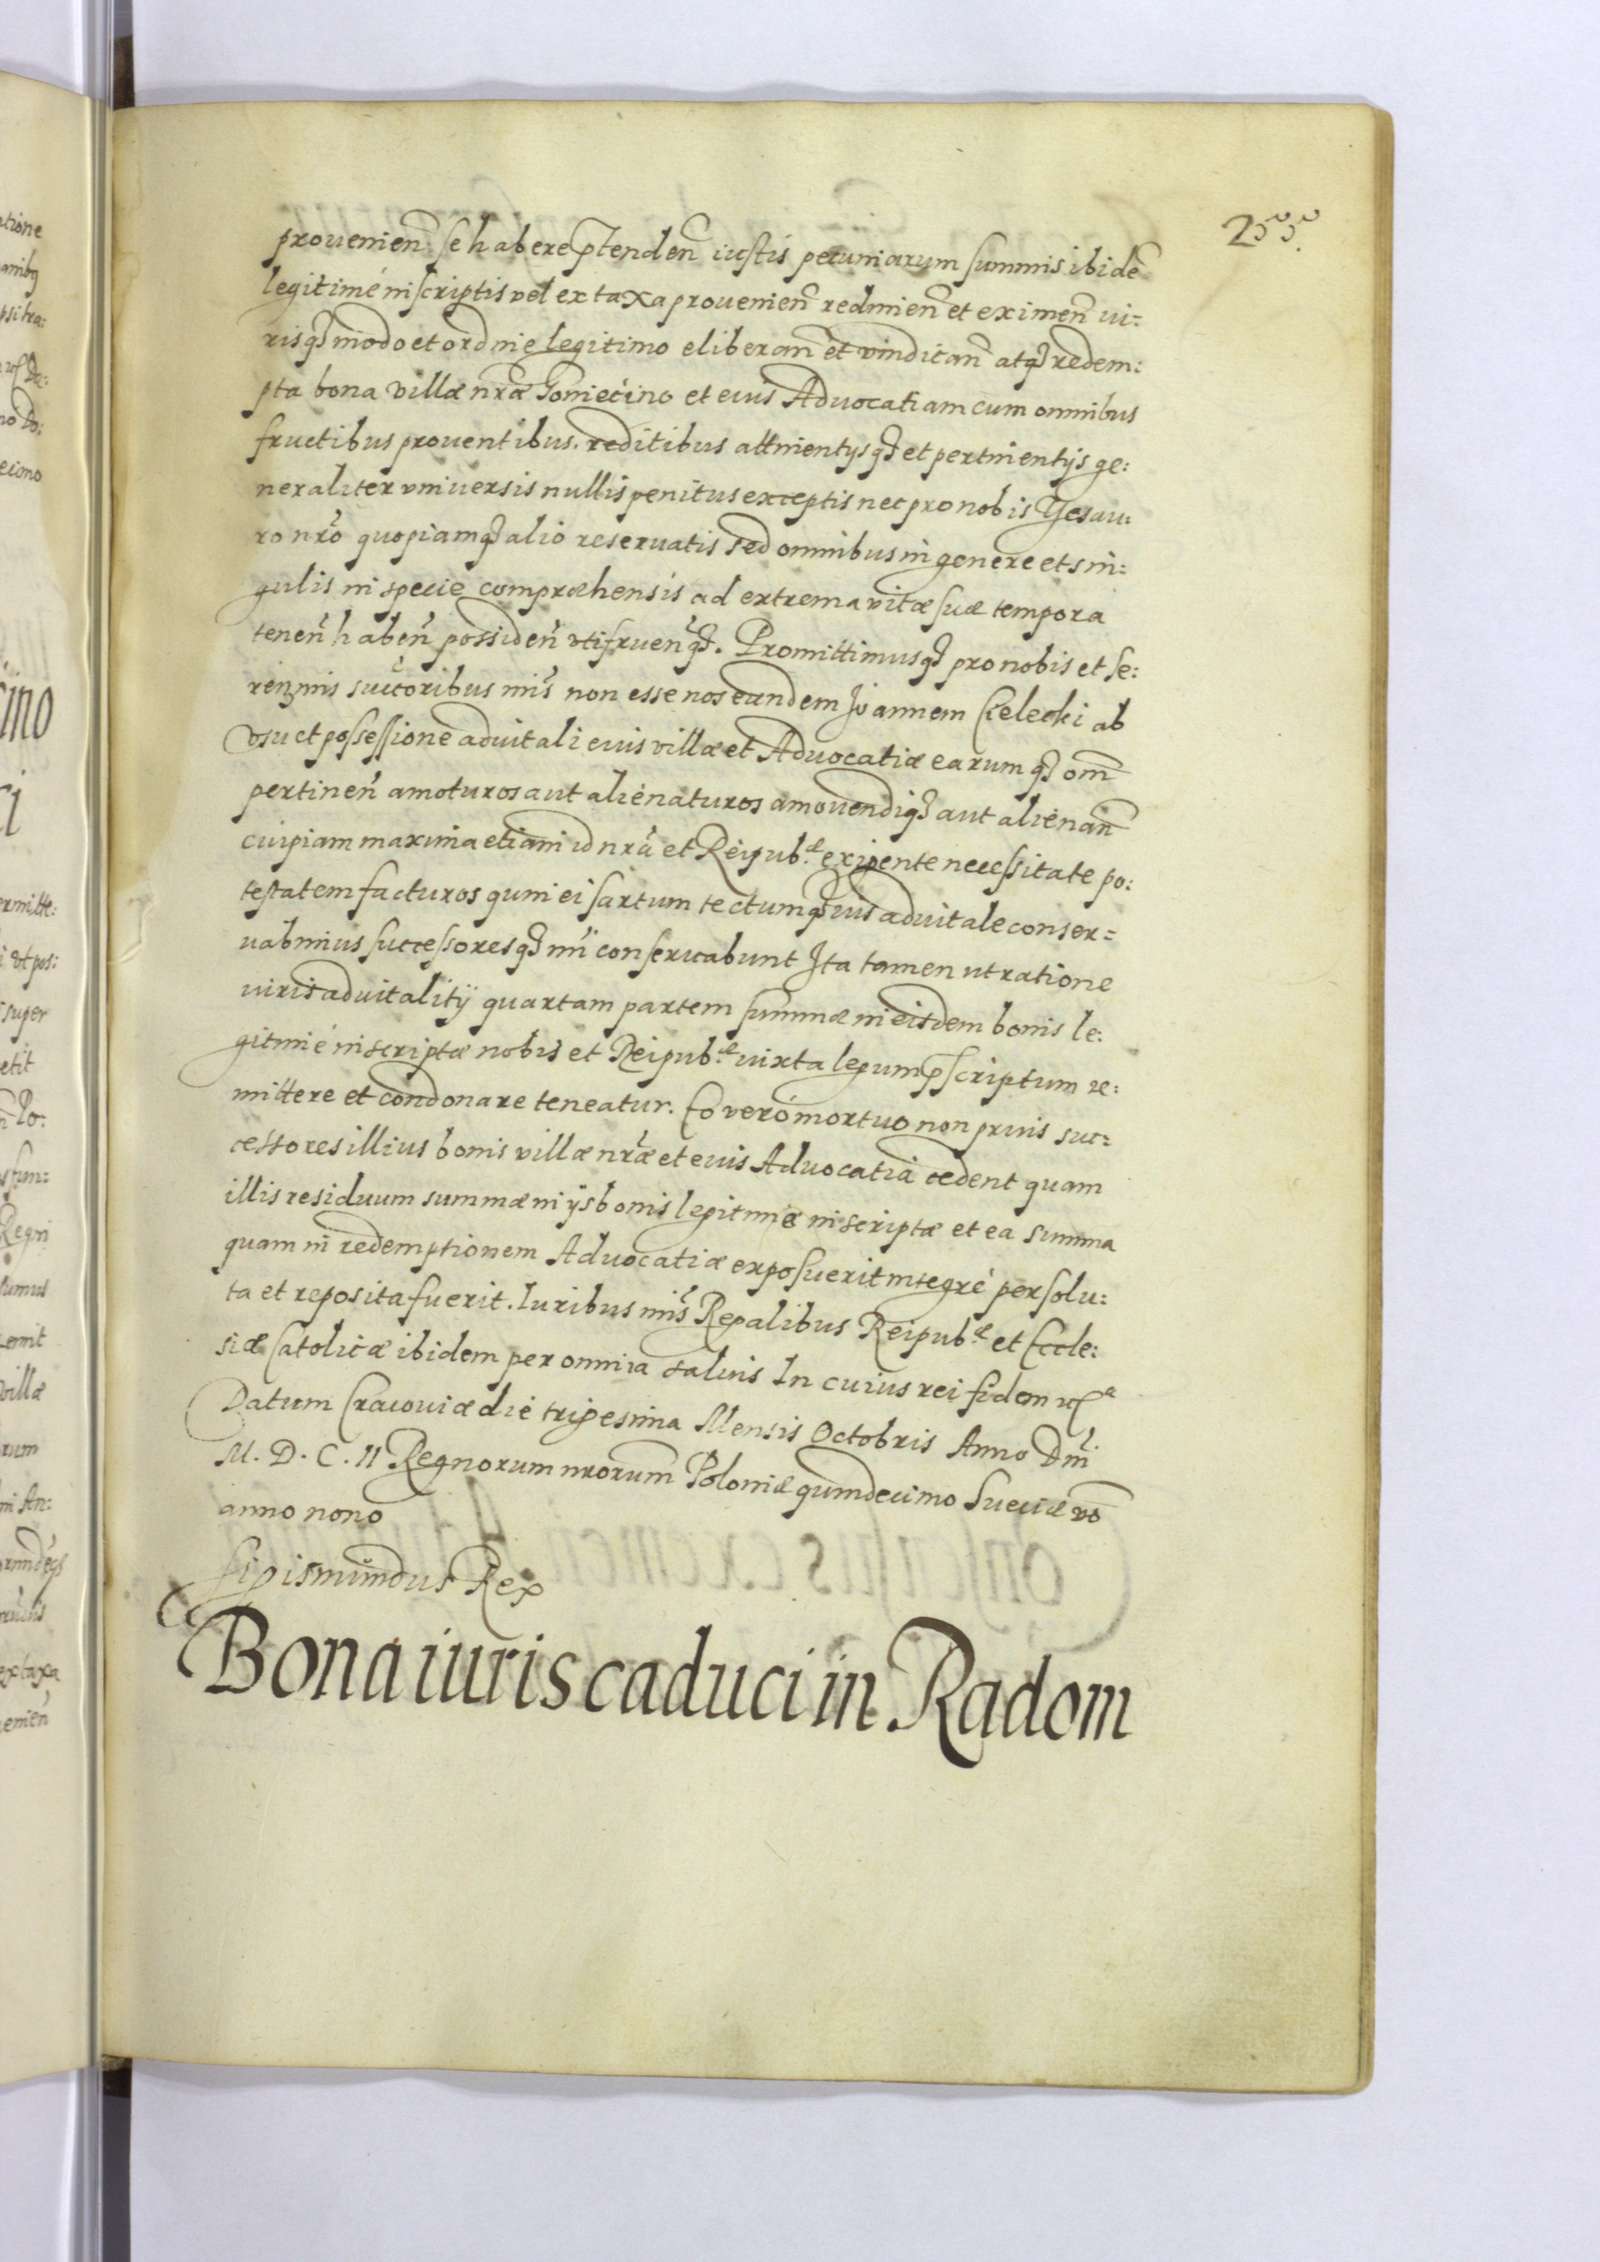 255.
prouenien̄ se habere p̄tenden̄ iustis pecuniarum summis ibidē
legitimé inscriptis vel ex taxa prouenien̄ redimien̄ et eximen̄ iu:
risq́ꝫ modo et ordine legitimo eliberan̄ et vindican̄ atq́ꝫ redem:
pta bona villæ nr̄æ Goniecino et eius Aduocatiam cum omnibus
fructibus prouentibus. reditibus attinentysq́ꝫ et pertinentijs ge:
neraliter vniuersis nullis penitus exceptis nec pro nobis Tesau:
ro nr̄o quopiamq́ꝫ alio reseruatis sed omnibus in genere et sin:
gulis in specie compræhensis ad extrema vitæ suæ tempora
tenen̄ haben̄ possiden̄ vtifruen̄q́ꝫ. Promittimusq́ꝫ pro nobis et se:
renmis succ̄oribus nris̄ non esse nos eundem Joannem Cielecki ab
vsu et possessione aduitali eius villæ et Aduocatiæ earumq́ꝫ om̄
pertinen̄ amoturos aut alienaturos amouendiq́ꝫ aut alienan̄
cuipiam maxima etiam id nrā et Reipub.æ exigente necessitate po:
testatem facturos quin ei sartum tectumq́ꝫ ius aduitale conser=
uabimus successoresq́ꝫ nri̅ conseruabunt Ita tamen ut ratione
iuris aduitalitÿ quartam partem summæ in eisdem bonis le:
gitimé inscriptæ nobis et Reipub.æ iuxta legum p̄scriptum re:
mittere et condonare teneatur. Eo veró mortuo non prius suc=
cessores illius bonis villæ nr̄æ et eius Aduocatiā cedent quam
illis residuum summæ in ijs bonis legitimæ inscriptæ et ea summa
quam in redemptionem Aduocatiæ exposuerit integré persolu:
ta et reposita fuerit. Iuribus nris̄ Regalibus Reipub.æ et Eccle:
siæ Catolicæ ibidem per omnia saluis In cuius rei fidem etcª
Datum Cracouiæ die trigesima Mensis Octobris Anno Dnī
M. D. C. II Regnorum nrorum̄ Poloniæ quindecimo Sueciæ vō
anno nono
Sigismundus Rex
Bona iuris caduci in Radom